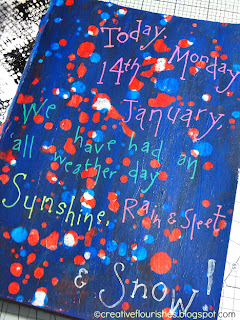 Today, Monday
14th January,
We have had an
all weather day
Sunshine, Rain & Sleet
& Snow!
©creativeflourishes.blogspot.com